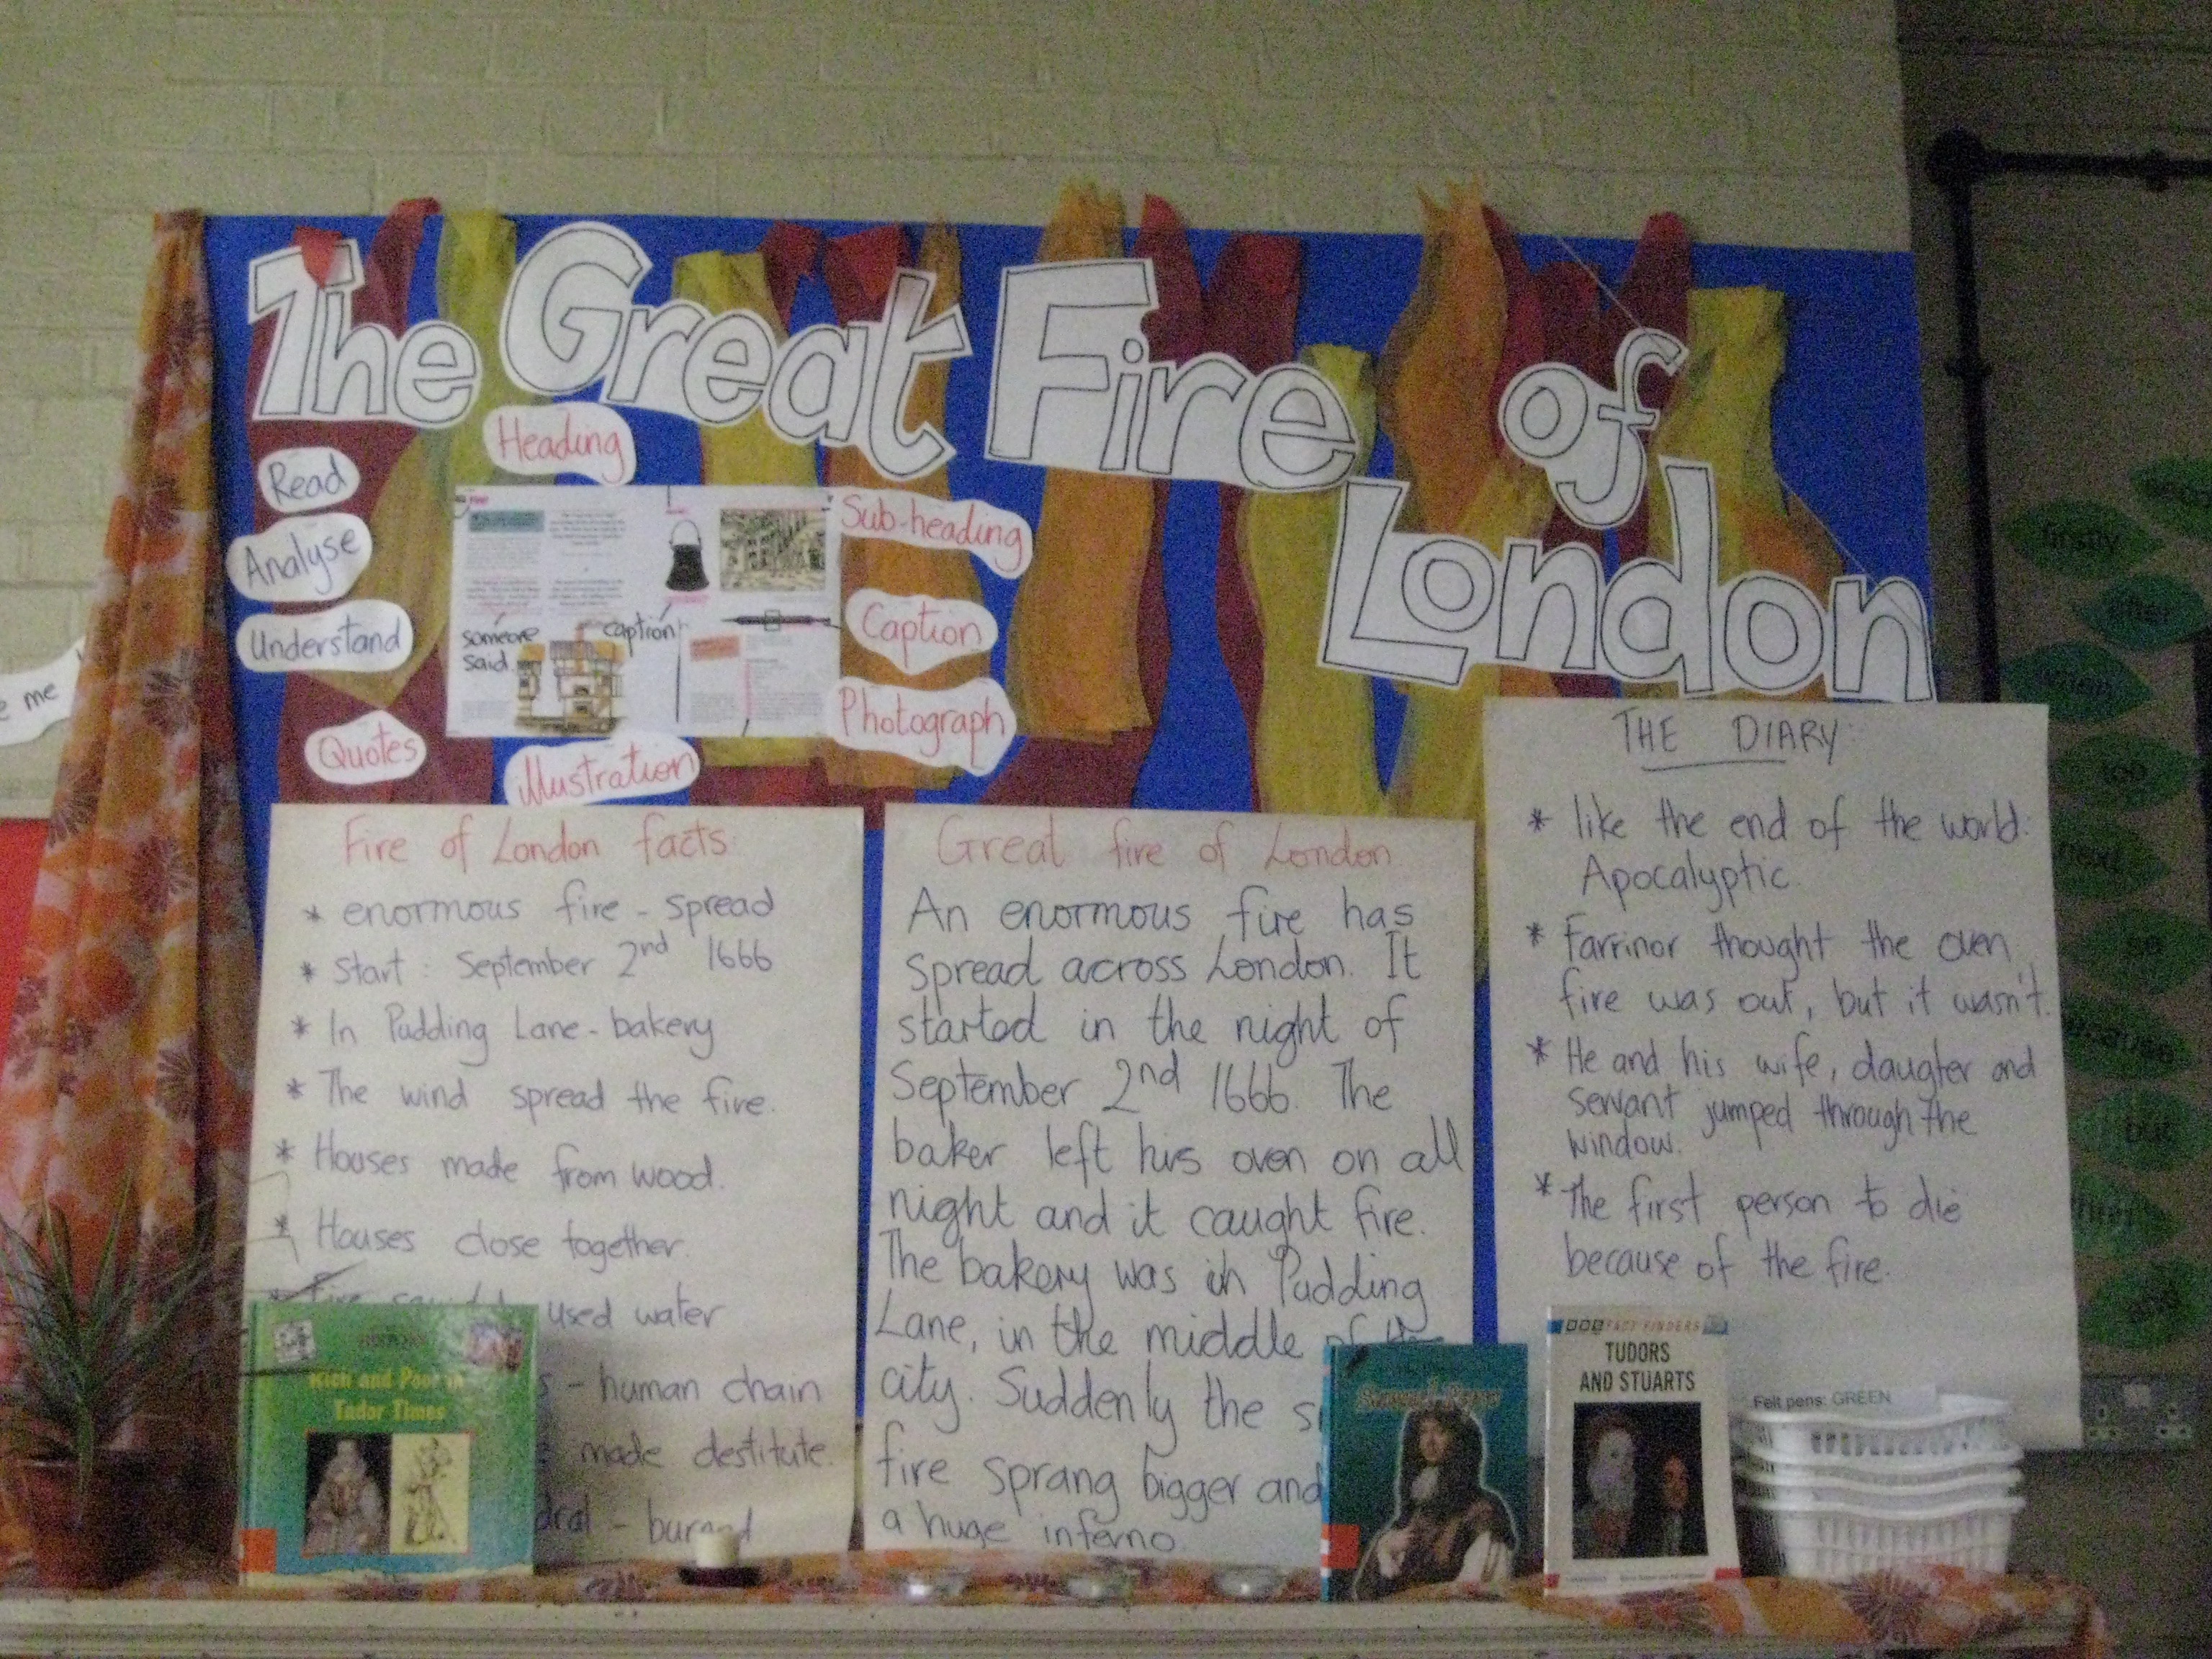 The Great Fire of London
Heading
Read
Analyse
Understand
Quotes
illustration
Sub-heading
Caption
Photograph
someone said
caption
e me
Fire of London facts:
* enormous fire - spread
* Start: September 2nd 1666
* In Pudding Lane - bakery
* The wind spread the fire.
* Houses made from wood.
* Houses close together.
* Fire used water
s - human chain
made destitute.
dral - burned
Great fire of London.
An enormous fire has
spread across London. It
started in the night of
September 2nd 1666. The
baker left his oven on all
night and it caught fire.
The bakery was in Pudding
Lane, in the middle of the
city. Suddenly the s
fire sprang bigger and
a huge inferno.
THE DIARY:
* like the end of the world:
Apocalyptic.
* Farrinor thought the oven
fire was out, but it wasn't.
* He and his wife, daugter and
servant jumped through the
window.
* The first person to die
because of the fire.
Rich and Poor in
Tudor Times
Samuel Pepys
BBC FACT FINDERS
TUDORS
AND STUARTS
Felt pens: GREEN
firstly
after
when
too
next
so
because
but
and